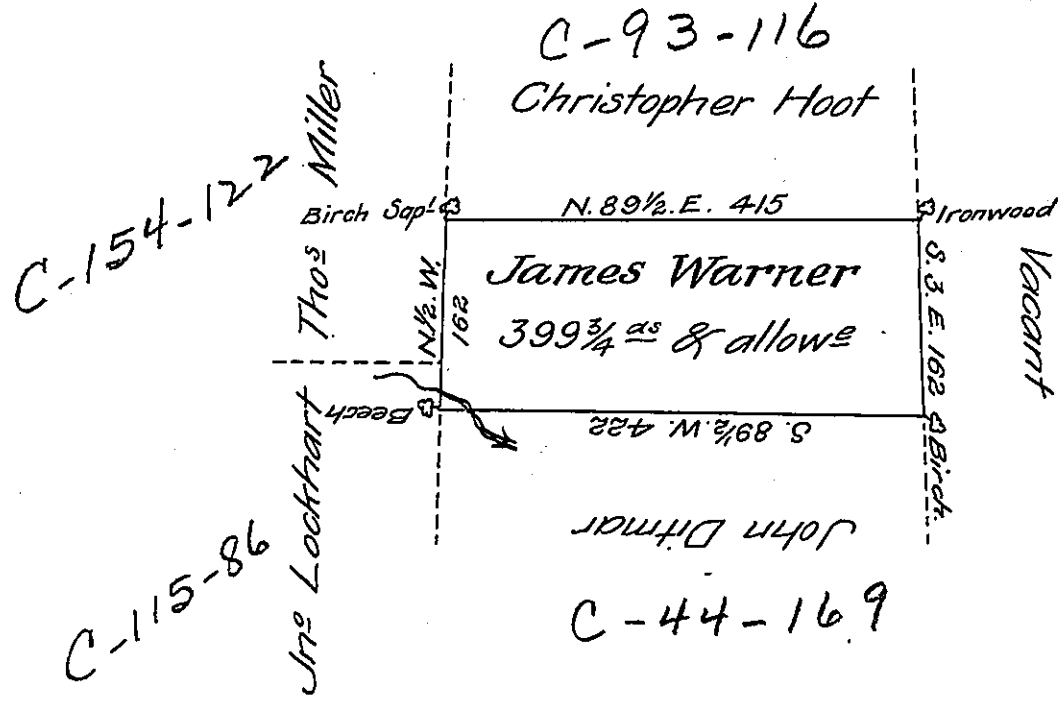 C-93-116
Christopher Hoot
C-154-122
Thos Miller
Birch Sapl
N. 89½. E. 415
Ironwood
James Warner
399¾ as & allowe
N.½. W.
162
S. 3. E. 162
Vacant
Beech
S. 89½. W. 422
Birch.
Jno Lockhart
John Ditmar
C-115-86
C-44-169